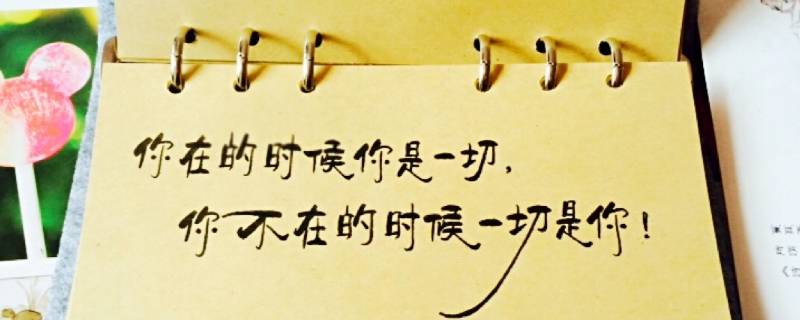 你在的时候你是一切,
你不在的时候一切是你!